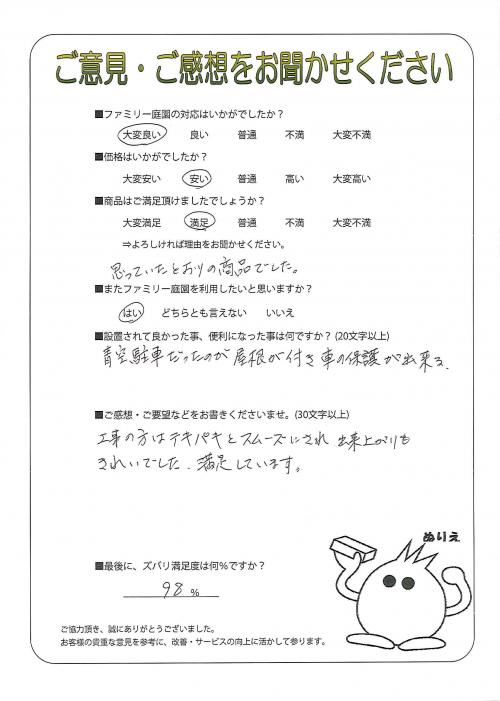 ご意見・ご感想をお聞かせください
■ファミリー庭園の対応はいかがでしたか?
大変良い 良い 普通 不満 大変不満
■価格はいかがでしたか?
大変安い 安い 普通 高い 大変高い
■商品はご満足頂けましたでしょうか?
大変満足 満足 普通 不満 大変不満
⇒よろしければ理由をお聞かせください。
思っていたとおりの商品でした。
■またファミリー庭園を利用したいと思いますか?
はい どちらとも言えない いいえ
■設置されて良かった事、便利になった事は何ですか?(20文字以上)
青空駐車だったのが屋根が付き車の保護が出来る.
■ご感想・ご要望などをお書きくださいませ。(30文字以上)
工事の方はテキパキとスムーズにされ出来上がりも
きれいでした.満足しています。
ぬりえ
■最後に、ズバリ満足度は何%ですか?
98 %
ご協力頂き、誠にありがとうございました。
お客様の貴重な意見を参考に、改善・サービスの向上に活かして参ります。